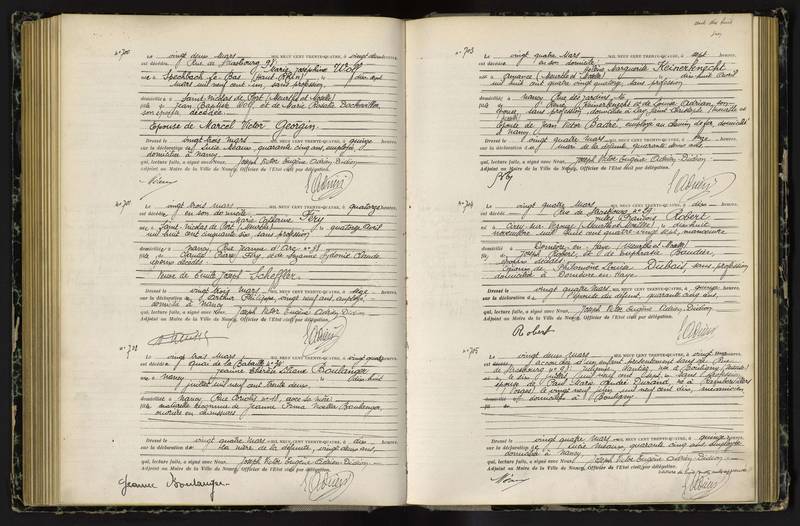 n° 700
Le vingt deux Mars MIL NEUF CENT TRENTE-QUATRE, à vingt deux heures
est décédée Rue de Strasbourg 98
Marie Joséphine Wolf
née à Spechbach-le-Bas (Haut-Rhin) le dix sept
Mars mil neuf cent un, sans profession
domiciliée à Saint-Nicolas de Port (Meurthe et Moselle)
fille de Jean Baptiste Wolf et de Marie Rosalie
son épouse décédée
Epouse de Marcel Victor Georgin.
Dressé le vingt trois mars MIL NEUF CENT TRENTE-QUATRE, à quinze heures
sur la déclaration de Lucie quarante cinq ans, employée
domiciliée à Nancy
qui, lecture faite, a signé avec Nous, Joseph Victor Eugène Adrien Didion
Adjoint au Maire de la Ville de Nancy, Officier de l'Etat civil par délégation.
n° 701
Le vingt trois mars MIL NEUF CENT TRENTE-QUATRE, à quatorze heures
est décédée en son domicile
Marie Catherine Féry
née à Saint-Nicolas de Port (Meurthe) le quatorze Avril
mil huit cent soixante six sans profession
domiciliée à Nancy Rue Jeanne d'Arc n° 98
fille de Claude Féry et de Suzanne Sydonie Claude
époux décédés
Veuve de Emile Joseph Scheffler.
Dressé le vingt trois mars MIL NEUF CENT TRENTE-QUATRE, à seize heures
sur la déclaration de Arthur Philippe, vingt neuf ans, employé
domicilié à Nancy
qui, lecture faite, a signé avec Nous, Joseph Victor Eugène Adrien Didion
Adjoint au Maire de la Ville de Nancy, Officier de l'Etat civil par délégation.
n° 702
Le vingt trois mars MIL NEUF CENT TRENTE-QUATRE, à vingt quatre heures
est décédée Quai de la Bataille n°
Jeanne Thérèse Liliane Boulanger
née à Nancy le dix huit
juillet mil neuf cent trente deux,
domiciliée à Nancy Rue n° 18, avec sa mère
fille naturelle reconnue de Jeanne Irma Boulanger,
ouvrière en chaussures
Dressé le vingt quatre mars MIL NEUF CENT TRENTE-QUATRE, à dix heures
sur la déclaration de la mère de la défunte, vingt deux ans,
qui, lecture faite, a signé avec Nous, Joseph Victor Eugène Adrien Didion
Adjoint au Maire de la Ville de Nancy, Officier de l'Etat civil par délégation.
Jeanne Boulanger
n° 703
Le vingt quatre mars MIL NEUF CENT TRENTE-QUATRE, à sept heures
est décédée en son domicile
Marguerite Keinerknecht
née à Amance (Meurthe et Moselle) le dix huit Avril
mil huit cent quatre vingt quatre, sans profession
domiciliée à Nancy Rue des Jardins
fille de Keinerknecht et de Louise Adrian, son
épouse, sans profession domiciliée à Lay Saint Christophe (Meurthe et Moselle)
Epouse de Jean Victor Badré, employé au chemin de fer domicilié
à Nancy
Dressé le vingt quatre mars MIL NEUF CENT TRENTE-QUATRE, à onze heures
sur la déclaration du mari de la défunte, quarante ans,
qui, lecture faite, a signé avec Nous, Joseph Victor Eugène Adrien Didion
Adjoint au Maire de la Ville de Nancy, Officier de l'Etat civil par délégation.
n° 704
Le vingt quatre mars MIL NEUF CENT TRENTE-QUATRE, à dix heures
est décédé Rue de Strasbourg n°
Jules François Robert
né à Cirey sur Vezouze (Meurthe et Moselle) le dix huit
novembre mil huit cent quatre-vingt sept, manoeuvre
domicilié à Domèvre en Haye (Meurthe et Moselle)
fils de Joseph Robert, et de Euphrasie
époux décédés
Epoux de Philomène Louise Dubois, sans profession
domiciliée à Domèvre en Haye
Dressé le vingt quatre mars MIL NEUF CENT TRENTE-QUATRE, à quinze heures
sur la déclaration de l'épouse du défunt, quarante cinq ans,
qui, lecture faite, a signé avec Nous, Joseph Victor Eugène Adrien Didion
Adjoint au Maire de la Ville de Nancy, Officier de l'Etat civil par délégation.
Robert
n° 705
Le vingt deux mars MIL NEUF CENT TRENTE-QUATRE, à vingt heures
est accouchée d'un enfant présentement sans vie Rue
de Strasbourg n° 98
née à Bouligny (Meuse)
le dix juillet mil neuf cent sans profession
épouse de Paul Marie André Durand, né à Rambervillers
(Vosges) le vingt neuf mil neuf cent dix, mécanicien
domiciliés à Bouligny
Dressé le vingt quatre mars MIL NEUF CENT TRENTE-QUATRE, à quinze heures
sur la déclaration de Lucie quarante cinq ans, employée
domiciliée à Nancy
qui, lecture faite, a signé avec Nous, Joseph Victor Eugène Adrien Didion
Adjoint au Maire de la Ville de Nancy, Officier de l'Etat civil par délégation.